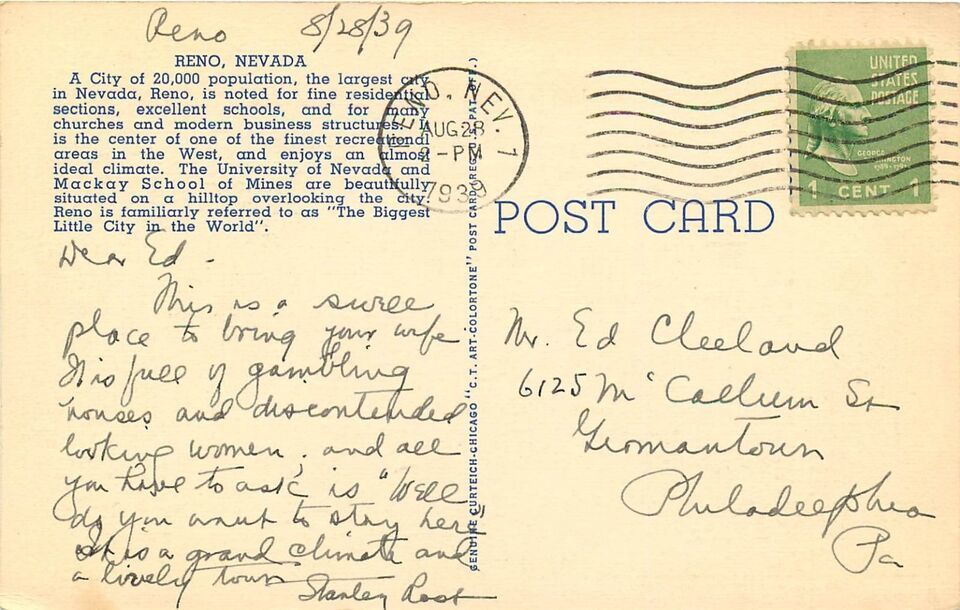 Reno 8/28/39
RENO, NEVADA
A City of 20,000 population, the largest city
in Nevada, Reno, is noted for fine residential
sections, excellent schools, and for many
churches and modern business structures. It
is the center of one of the finest recreational
areas in the West, and enjoys an almost
ideal climate. The University of Nevada and
Mackay School of Mines are beautifully
situated on a hilltop overlooking the city.
Reno is familiarly referred to as "The Biggest
Little City in the World".
Dear Ed -
This is a swell
place to bring your wife
It is full of gambling
houses and discontended
looking women, and all
you have to ask is "Well
do you want to stay here"
It is a grand climate and
a lively town
Stanley
GENUINE CURTEICH-CHICAGO "C.T. ART-COLORTONE" POST CARD (REG. U.S. PAT. OFF.)
RENO, NEV. 1
AUG 28
2-PM
1939
UNITED
STATES
POSTAGE
GEORGE
WASHINGTON
1789-1797
1 CENT 1
POST CARD
Mr. Ed Cleeland
6125 McCallum St
Germantown
Philadelphia
Pa